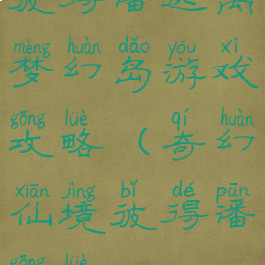 彼得潘逃离
mèng huàn dǎo yóu xì
梦幻岛游戏
gōng lüè qí huàn
攻略(奇幻
xiān jìng bǐ dé pān
仙境彼得潘
gōng lüè